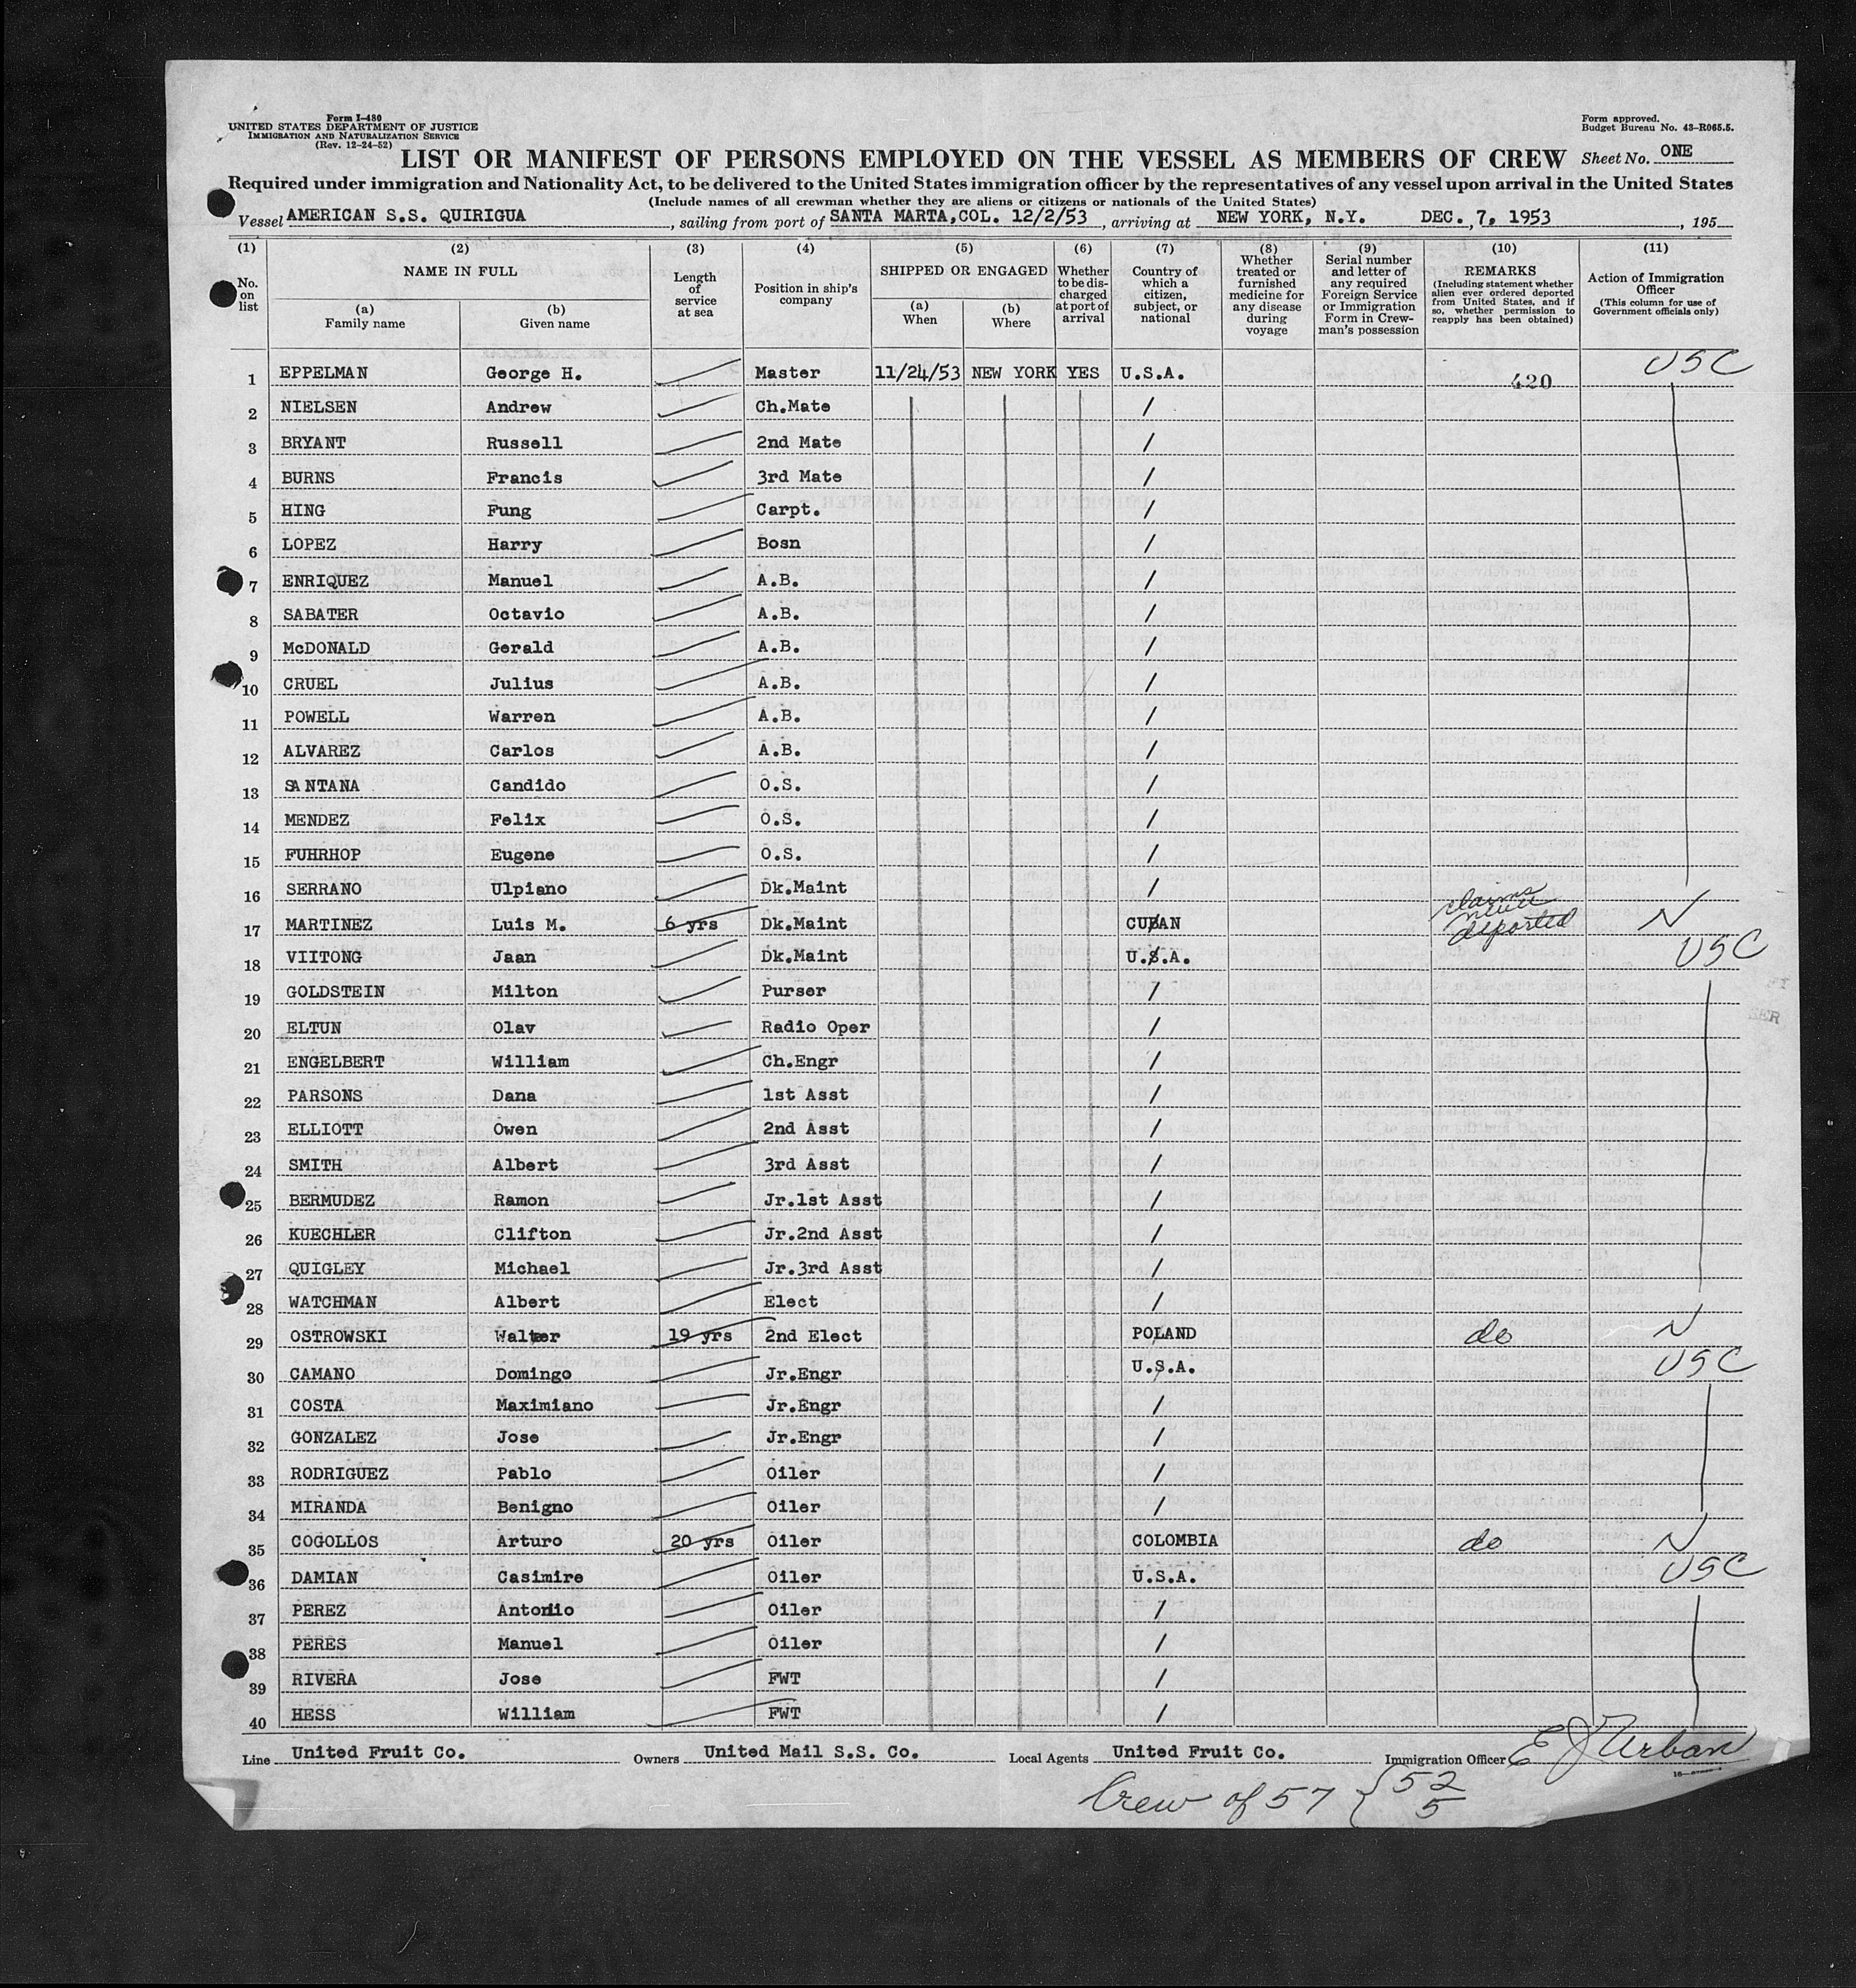 Form I-480
UNITED STATES DEPARTMENT OF JUSTICE
IMMIGRATION AND NATURALIZATION SERVICE
(Rev. 12-24-52)
Form approved.
Budget Bureau No. 43-R065.5.
LIST OR MANIFEST OF PERSONS EMPLOYED ON THE VESSEL AS MEMBERS OF CREW Sheet No. ONE
Required under immigration and Nationality Act, to be delivered to the United States immigration officer by the representatives of any vessel upon arrival in the United States
(Include names of all crewman whether they are aliens or citizens or nationals of the United States)
Vessel AMERICAN S.S. QUIRIGUA, sailing from port of SANTA MARTA,COL. 12/2/53, arriving at NEW YORK, N.Y. DEC. 7, 1953, 195
(1) (2) (3) (4) (5) (6) (7) (8) (9) (10) (11)
No. on list
NAME IN FULL
(a) Family name
(b) Given name
Length of service at sea
Position in ship's company
SHIPPED OR ENGAGED
(a) When
(b) Where
Whether to be discharged at port of arrival
Country of which a citizen, subject, or national
Whether treated or furnished medicine for any disease during voyage
Serial number and letter of any required Foreign Service or Immigration Form in Crewman's possession
REMARKS
(Including statement whether alien ever ordered deported from United States, and if so, whether permission to reapply has been obtained)
Action of Immigration Officer
(This column for use of Government officials only)
1 EPPELMAN George H. Master 11/24/53 NEW YORK YES U.S.A. 420 USC
2 NIELSEN Andrew Ch.Mate /
3 BRYANT Russell 2nd Mate /
4 BURNS Francis 3rd Mate /
5 HING Fung Carpt. /
6 LOPEZ Harry Bosn /
7 ENRIQUEZ Manuel A.B. /
8 SABATER Octavio A.B. /
9 McDONALD Gerald A.B. /
10 CRUEL Julius A.B. /
11 POWELL Warren A.B. /
12 ALVAREZ Carlos A.B. /
13 SANTANA Candido O.S. /
14 MENDEZ Felix O.S. /
15 FUHRHOP Eugene O.S. /
16 SERRANO Ulpiano Dk.Maint /
17 MARTINEZ Luis M. 6 yrs Dk.Maint CUBAN claims never deported N
18 VIITONG Jaan Dk.Maint U.S.A. USC
19 GOLDSTEIN Milton Purser /
20 ELTUN Olav Radio Oper /
21 ENGELBERT William Ch.Engr /
22 PARSONS Dana 1st Asst /
23 ELLIOTT Owen 2nd Asst /
24 SMITH Albert 3rd Asst /
25 BERMUDEZ Ramon Jr.1st Asst /
26 KUECHLER Clifton Jr.2nd Asst /
27 QUIGLEY Michael Jr.3rd Asst /
28 WATCHMAN Albert Elect /
29 OSTROWSKI Walter 19 yrs 2nd Elect POLAND do N
30 CAMANO Domingo Jr.Engr U.S.A. USC
31 COSTA Maximiano Jr.Engr /
32 GONZALEZ Jose Jr.Engr /
33 RODRIGUEZ Pablo Oiler /
34 MIRANDA Benigno Oiler /
35 COGOLLOS Arturo 20 yrs Oiler COLOMBIA do N
36 DAMIAN Casimire Oiler U.S.A. USC
37 PEREZ Antonio Oiler /
38 PERES Manuel Oiler /
39 RIVERA Jose FWT /
40 HESS William FWT /
Line United Fruit Co. Owners United Mail S.S. Co. Local Agents United Fruit Co. Immigration Officer E J Urban
Crew of 57 { 52
5